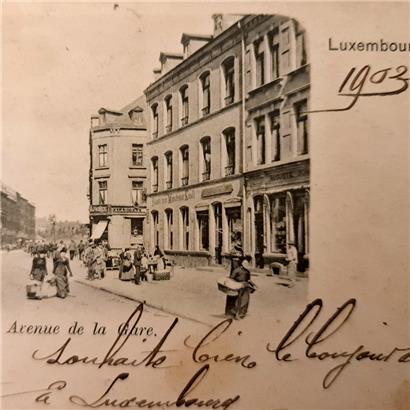 Luxembour
1903
Avenue de la Gare.
souhaite bien le bonjour d
à Luxembourg